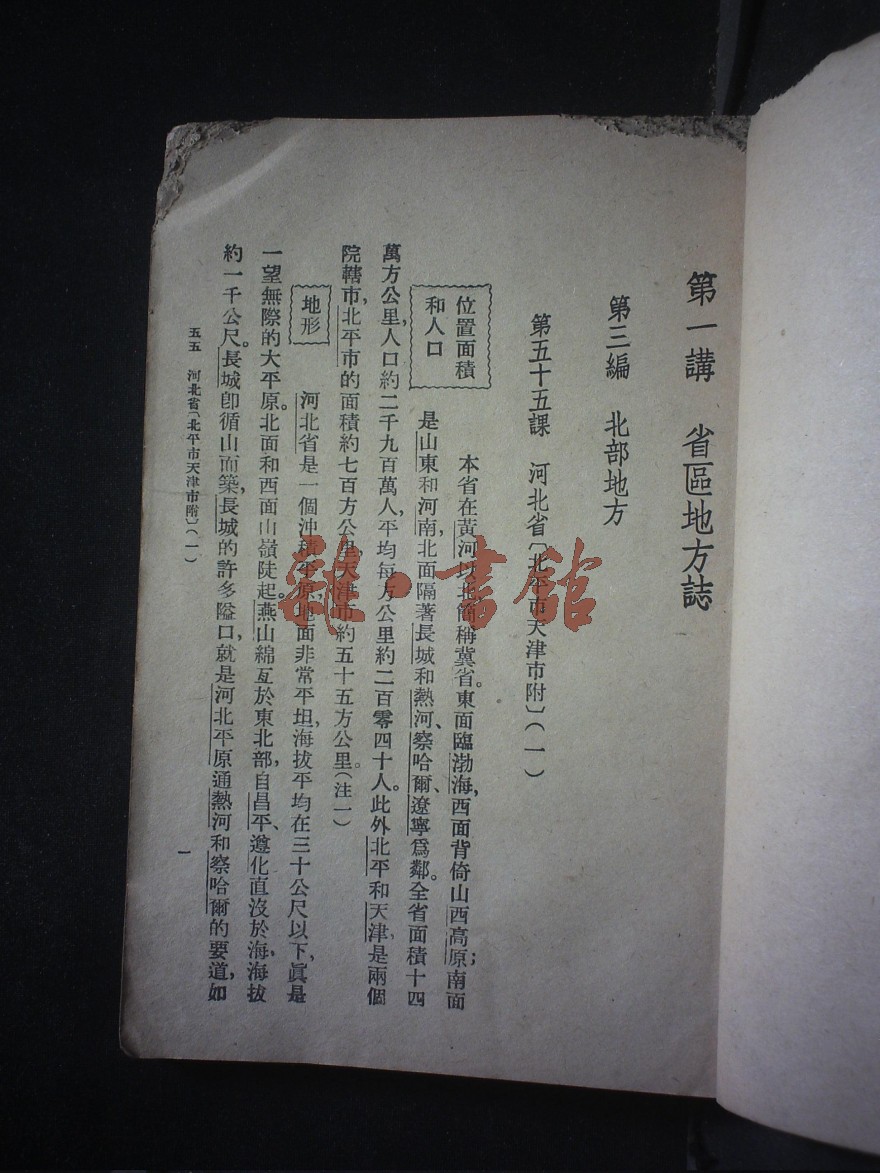 第一講　省區地方誌
第三編　北部地方
第五十五課　河北省〔北平市天津市附〕（一）
位置面積
和人口
本省在黃河以北，簡稱冀省。東面臨渤海，西面背倚山西高原；南面
是山東和河南，北面隔著長城和熱河、察哈爾、遼寧爲鄰。全省面積十四
萬方公里，人口約二千九百萬人，平均每方公里約二百零四十人。此外北平和天津是兩個
院轄市，北平市的面積約七百方公里，天津市約五十五方公里。（注一）
地形
河北省是一個沖積平原，地面非常平坦，海拔平均在三十公尺以下，眞是
一望無際的大平原。北面和西面山嶺陡起。燕山綿亙於東北部，自昌平、遵化直沒於海，海拔
約一千公尺。長城卽循山而築，長城的許多隘口，就是河北平原通熱河和察哈爾的要道，如
五五　河北省〔北平市天津市附〕（一）
一
雜·書館